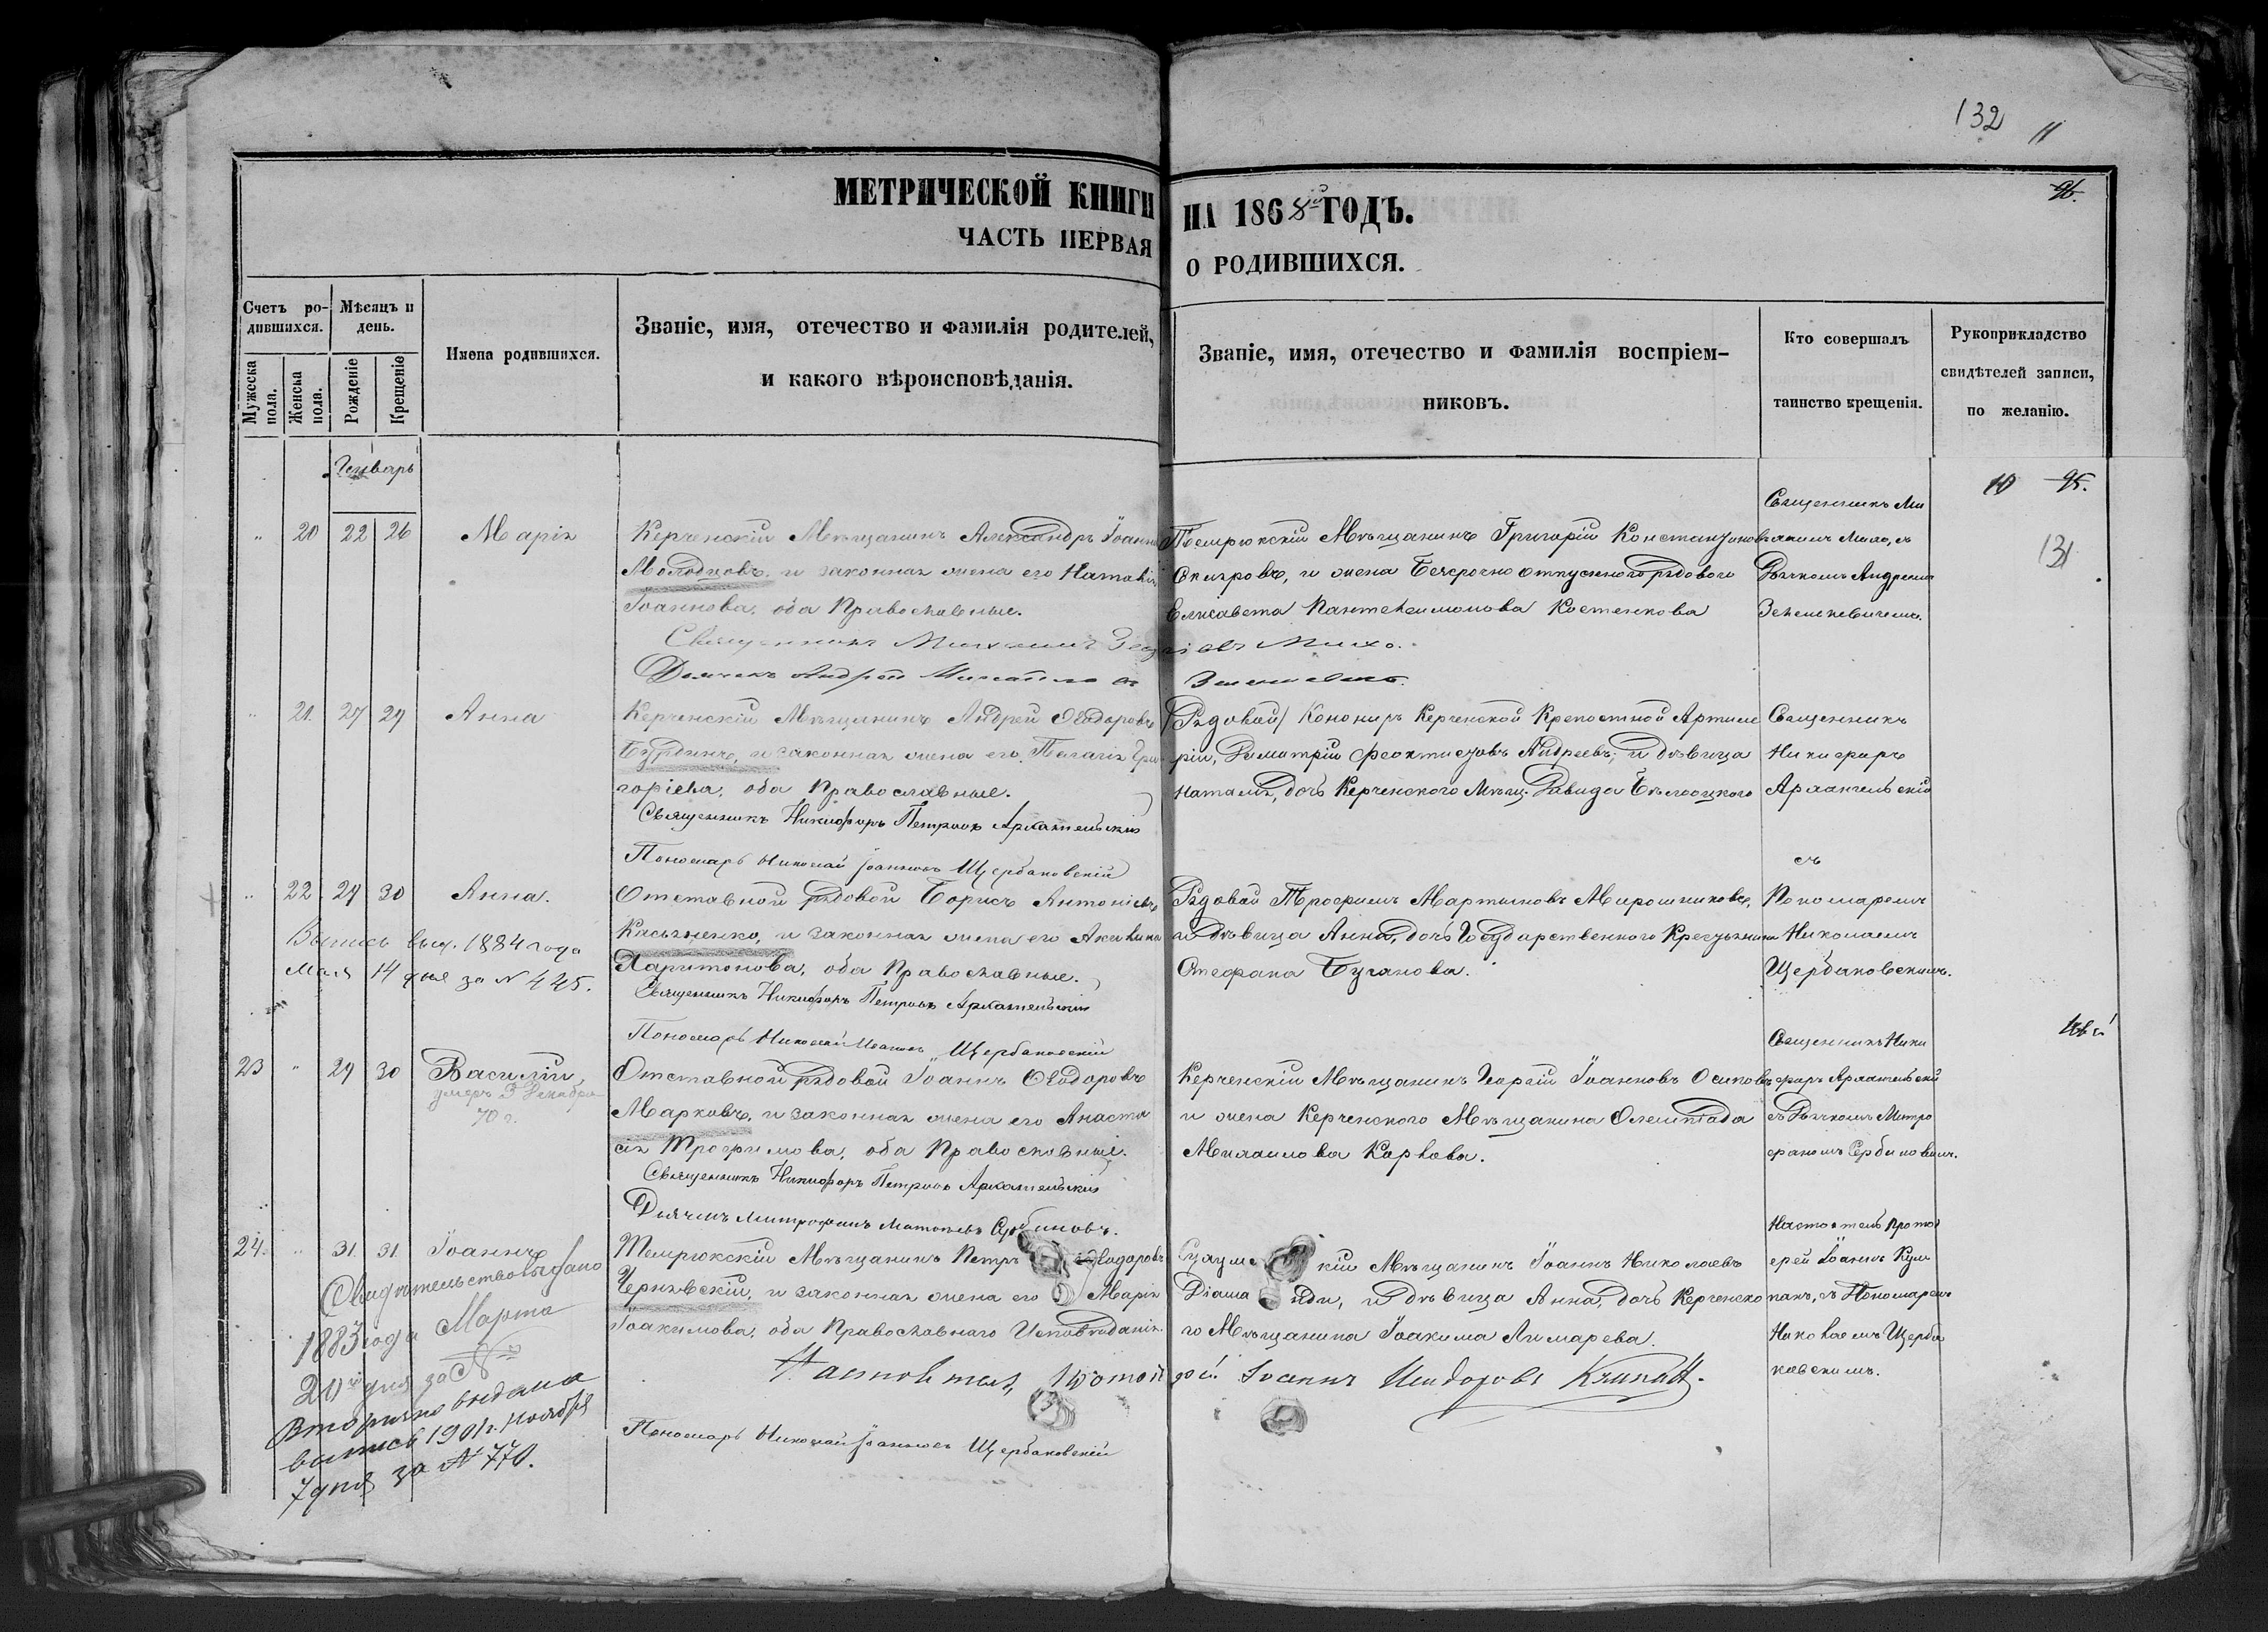 132
11
МЕТРИЧЕСКОЙ КНИГИ НА 1868й ГОДЪ.
96.
ЧАСТЬ ПЕРВАЯ О РОДИВШИХСЯ.
Счетъ ро-
дившихся.
Мужеска пола.
Женска пола.
Мѣсяцъ и
день.
Рожденіе
Крещеніе
Имена родившихся.
Званіе, имя, отечество и фамилія родителей,
и какого вѣроисповѣданія.
Званіе, имя, отечество и фамилія воспріем-
никовъ.
Кто совершалъ
таинство крещенія.
Рукоприкладство
свидѣтелей записи,
по желанію.
Генварь
10 95.
131
„ 20 22 26 Марія
Керченскій Мѣщанинъ Александръ Іоанно
Молодцовъ, и законная жена его Наталія
Іоаннова, оба Православные.
Священникъ Михаилъ Георгіевъ Михо.
Дьячекъ Андрей
Темрюкскій Мѣщанинъ Григорій Константиновъ
Спировъ, и жена Безсрочно отпускного рядового
Елисавета Пантелеимонова Костенкова
Священникъ Ми
хаилъ Михо, съ
Дьячкомъ Андреемъ
Зеленкевичемъ.
„ 21. 27 29 Анна
Керченскій Мѣщанинъ Андрей Ѳеодоровъ
Бурдинъ, и законная жена его, Пелагія Гри
горіева, оба Православные.
Священникъ Никифоръ Петровъ Архангельскій
Пономарь Николай Іоанновъ Щербаковскій
(Рядовой) Конониръ Керченской Крепостной Артиле
ріи, Димитрій Феоктистовъ Андреевъ; и дѣвица
Наталія, дочь Керченского Мѣщ. Давида Бѣлооцкого
Священникъ
Никифоръ
Архангельскій
съ
Пономаремъ
Николаемъ
Щербаковскимъ.
„ 22 29 30 Анна.
Выпись выд. 1884 года
Мая 14 дня за № 425.
Отставной рядовой Борисъ Антоніевъ
Касьяненко, и законная жена его Акилина
Харитонова, оба Православные.
Священникъ Никифоръ Петровъ Архангельскій
Пономарь Николай Иванновъ Щербаковскій
Рядовой Трофимъ Мартыновъ Мирошниковъ,
и дѣвица Анна, дочь Государственного Крестьянина
Стефана Буганова.
23 „ 29 30 Василій
умеръ 3 Декабря
70 г.
Отставной рядовой Іоаннъ Ѳеодоровъ
Марковъ, и законная жена его Анаста
сія Трофимова, оба Православные.
Священникъ Никифоръ Петровъ Архангельскій
Дьячекъ Митрофанъ Матвѣевъ Сербиновъ.
Керченскій Мѣщанинъ Георгій Іоанновъ Осиповъ
и жена Керченского Мѣщанина Олимпіада
Михаилова Карпова.
Священникъ Ники
форъ Архангельскій
съ Дьячкомъ Митро
фаномъ Сербиновымъ.
24. „ 31. 31. Іоаннъ
Свидѣтельство выдано
1883 года Марта
20го дня за №
Вторично выдана
выпись 1901 г. Ноября
7 дня за № 770.
Темрюкскій Мѣщанинъ Петръ Ѳеодоровъ
Чернявскій, и законная жена его Марія
Іоакимова, оба Православнаго Исповѣданія.
Настоятель Протоіерей Іоаннъ Исидоровъ
Пономарь Николай Іоанновъ Щербаковскій
кій Мѣщанинъ Іоаннъ Николаевъ
Діама нди, и дѣвица Анна, дочь Керченско
го Мѣщанина Іоакима Лимарева.
Настоятель Прото
ерей Іоаннъ Кум
панъ, съ Пономаремъ
Николаемъ Щерба
ковскимъ.